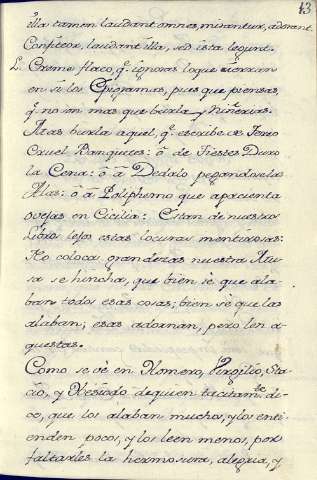 43
illa tamen laudant omnes, mirantur, adorant.
Confiteor, laudant illa, sed ista legunt.
L. Creme flaco, q. ignoras lo que encierran
en si los Epigramas, pues que piensas,
q. no son mas que burla y Niñerias.
Mas burla aquel, q. escribe de Tereo
Cruel Banquetes: ó de Tiestes Duro
la Cena: ó à Dedalo pegandose las
Alas: ó à Poliphemo que apacienta
ovejas en Cicilia: Estan de nuestro
Libro lejos estas locuras mentirosas:
No coloca grandezas nuestra Mu
sa se hincha, que bien sè que ala-
ban todos esas cosas; bien sè que las
alaban; esas adoran, pero len a-
questas.
Como se vè en Homero, Virgilio, Sta-
cio, y Hesiodo de quien tacitam.te di-
ce, que los alaban muchos, y los enti-
enden pocos, y los leen menos, por
faltarles la hermosura, alegria, y